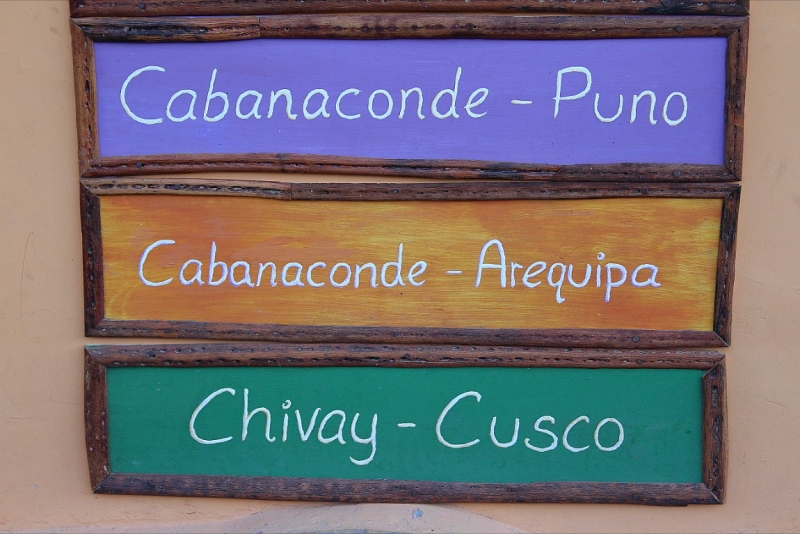 Cabanaconde - Puno
Cabanaconde - Arequipa
Chivay - Cusco